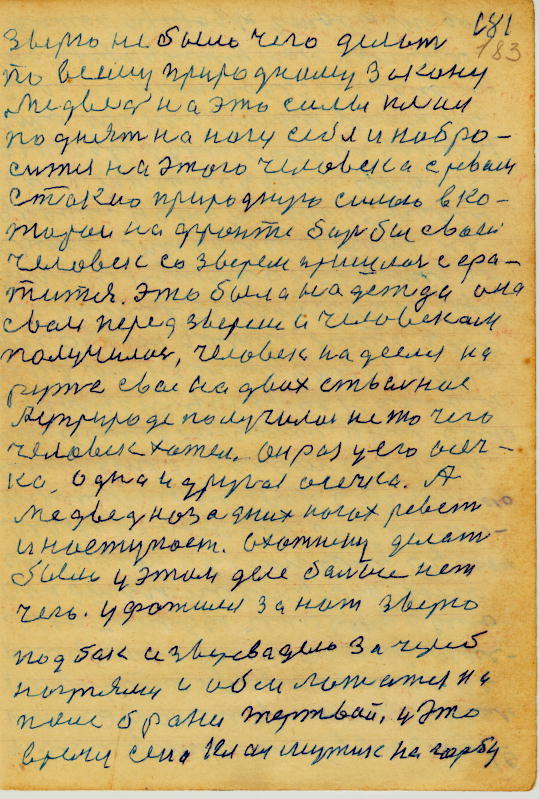 181
183
зверю не было чего делат
по всему природному закону
медвед на это силы клал
поднят на ногу себя и набро-
сится на этого человека с ревом
с такою природную силою в ко-
торой на фронте борбы своей
человек со зверем пришлос сра-
зится. Это была надежда она
свам перед зверем и человеком
получилас, человек надеелся на
руже свае на двох ствольное
А у природе получилос не то чего
человек хотел. он раз у его осеч-
ка, одна и другая осечка. А
медвед на задних ногах ревет
и наступает. охотнику делат
было у этом деле болше нет
чего. ухватился за нож зверю
под бок а зверевадело за череб
ногтями и обои ложатся на
поле брани жертвой, у это
время села Илая мужик на горбу